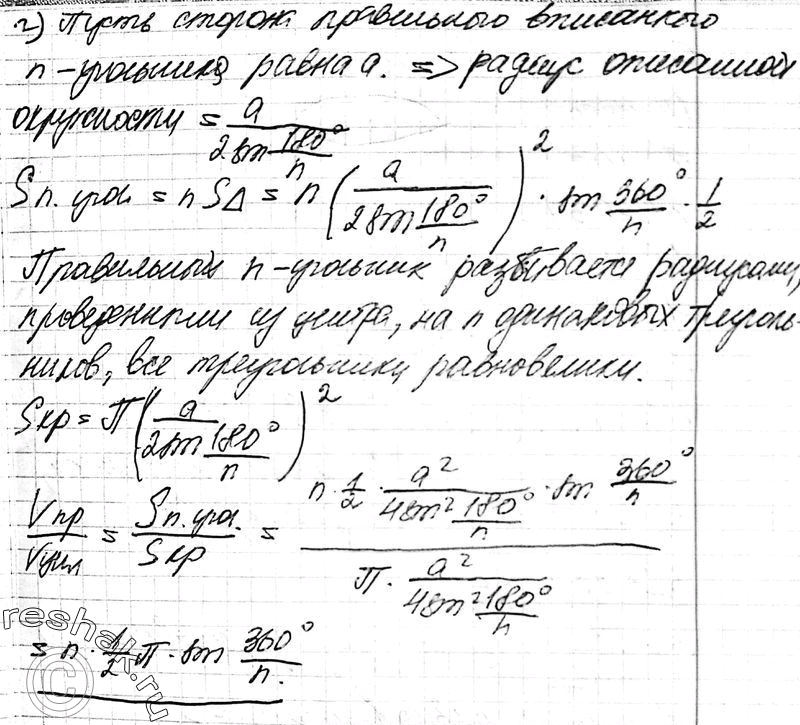 г) Пусть сторона правильного вписанного
n-угольника равна a. => радиус описанной
окружности = a / (2 sin 180°/n)
Sп.угол = n S△ = n (a / (2 sin 180°/n))² · sin 360°/n · 1/2
Правильный n-угольник разбивается радиусами,
проведенными из центра, на n одинаковых треуголь-
ников, все треугольники равновелики.
Sкр = П (a / (2 sin 180°/n))²
Vпр / Vцил = Sп.угол / Sкр = (n · 1/2 · a² / (4 sin² 180°/n) · sin 360°/n) / (П · a² / (4 sin² 180°/n))
= n · 1/2 П · sin 360°/n.
reshak.ru